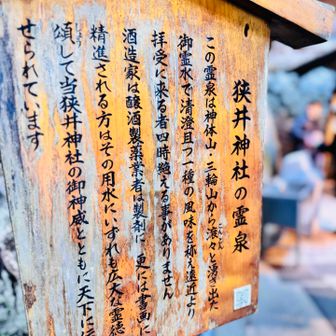 狭井神社の霊泉
この霊泉は神体山・三輪山から滾々と湧き出た
こんこん
御霊水で清澄且つ一種の風味を称え遠近より
拝受に来る者四時絶える事がありません
酒造家は醸酒製薬業者は製剤に更には書画に
精進される方はその用水にいずれも広大な霊徳
頌して当狭井神社の御神威とともに天下に
せられています